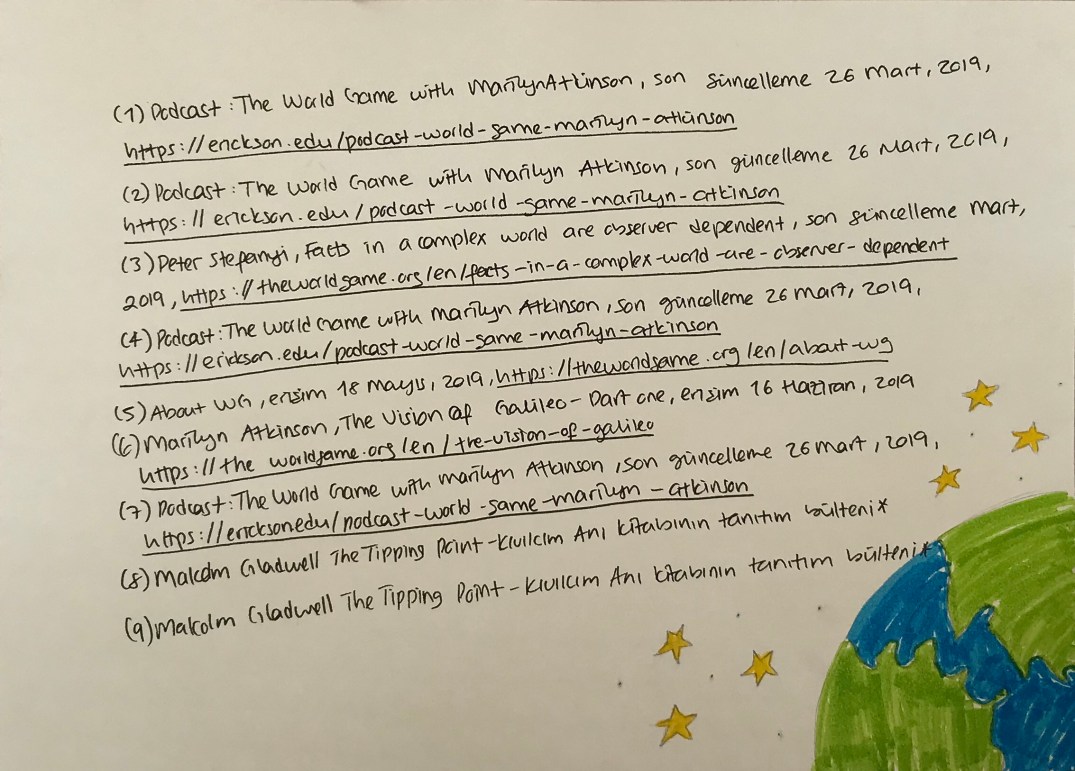 (1) Podcast: The World Game with Marilyn Atkinson, son güncelleme 26 Mart, 2019,
https://erickson.edu/podcast-world-game-marilyn-atkinson
(2) Podcast: The World Game with Marilyn Atkinson, son güncelleme 26 Mart, 2019,
https://erickson.edu/podcast-world-game-marilyn-atkinson
(3) Peter Stepanyi, Facts in a complex world are observer dependent, son güncelleme Mart,
2019, https://theworldgame.org/en/facts-in-a-complex-world-are-observer-dependent
(4) Podcast: The World Game with Marilyn Atkinson, son güncelleme 26 Mart, 2019,
https://erickson.edu/podcast-world-game-marilyn-atkinson
(5) About WG, erişim 18 Mayıs, 2019, https://theworldgame.org/en/about-wg
(6) Marilyn Atkinson, The Vision of Galileo - Part one, erişim 16 Haziran, 2019
https://theworldgame.org/en/the-vision-of-galileo
(7) Podcast: The World Game with Marilyn Atkinson, son güncelleme 26 Mart, 2019,
https://ericksonedu/podcast-world-game-marilyn-atkinson
(8) Malcolm Gladwell The Tipping Point - Kıvılcım Anı kitabının tanıtım bülteni*
(9) Malkolm Gladwell The Tipping Point - Kıvılcım Anı kitabının tanıtım bülteni*